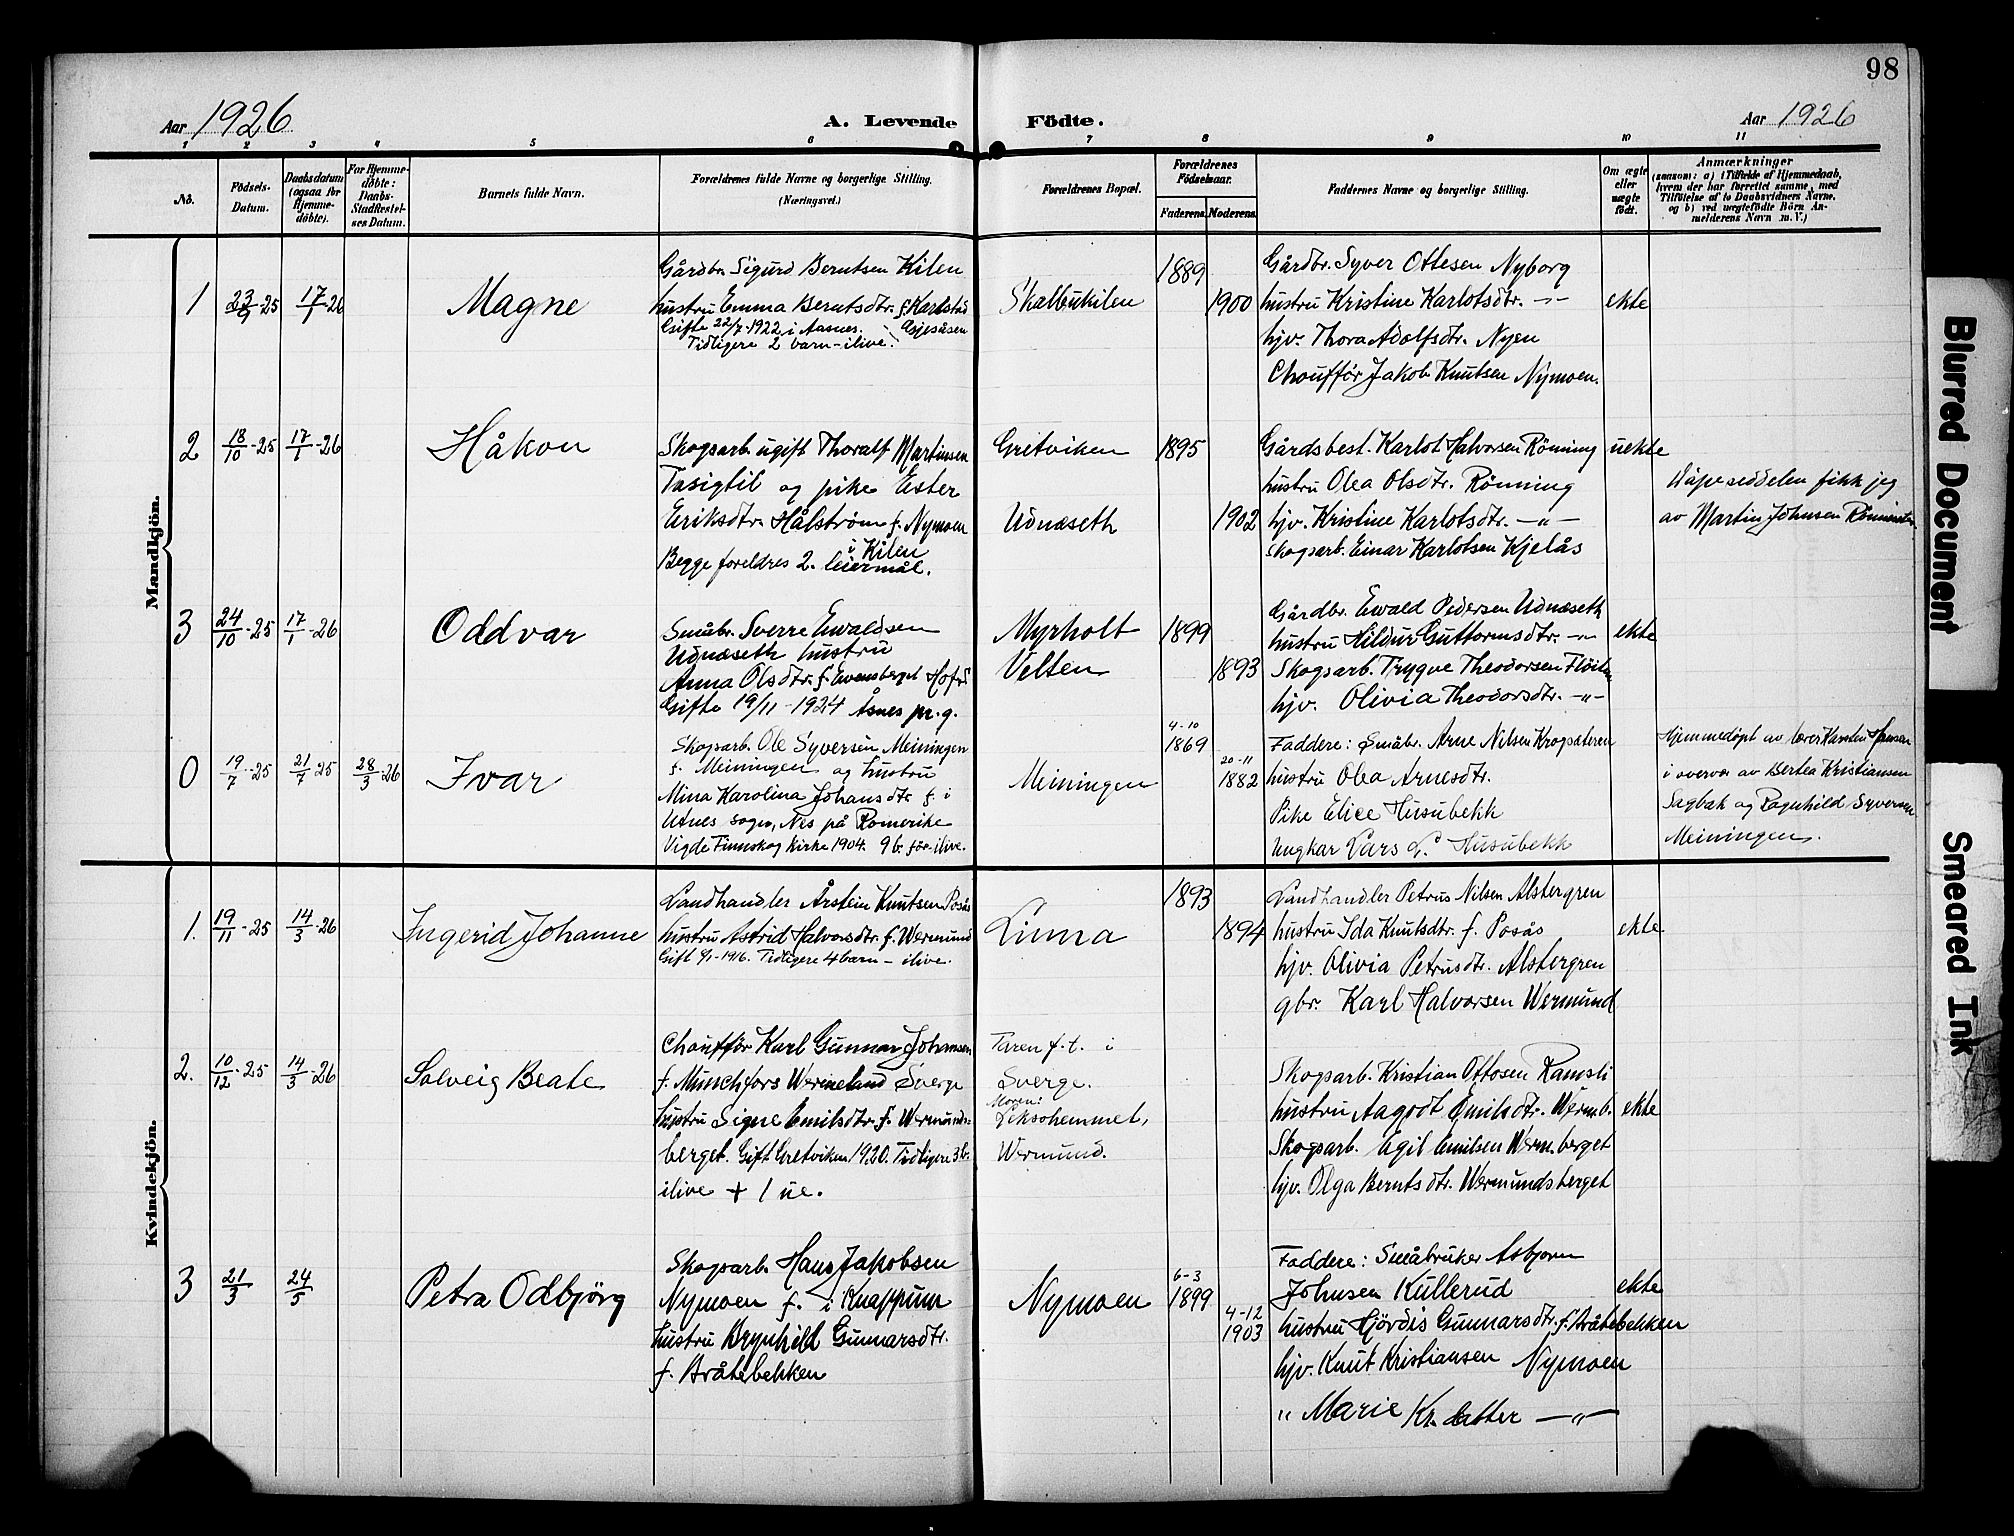 98
Aar 1926
A. Levende Födte.
Aar 1926
1 2 3 4 5 6 7 8 9 10 11
No.
Födsels-
Datum.
Daabsdatum
(ogsaa for
Hjemme-
döbte).
For Hjemme-
döbte:
Daabs-
Stadfæstel-
ses Datum.
Barnets fulde Navn.
Forældrenes fulde Navne og borgerlige Stilling.
(Næringsvei.)
Forældrenes Bopæl.
Forældrenes
Födselsaar.
Faderens Moderens
Faddernes Navne og borgerlige Stilling.
Om ægte
eller
uægte
födt.
Anmærkninger
(saasom: a) i Tilfælde af Hjemmedaab,
hvem der har forrettet samme, med
Tilföielse af to Daabsvidners Navne,
og b) ved uægtefödte Börn An-
melderens Navn m. V.)
Mandkjön.
1
-25
17/1-26
Magne
Gårdbr. Sigurd Berntsen Kilen
hustru Emma Berntsdtr. f. Karlstad
Gifte 22/7-1922 i Aasnes.
Tidligere 2 barn-ilive.
Skalbukilen
1889
1900
Gårdbr. Syver Ottesen Nyborg
hustru Kristine Karlotsdtr. -"-
hjv. Thora Adolfsdtr. Nyen
Chouffør Jakob Knutsen Nymoen.
ekte
2
18/10-25
17/1-26
Håkon
Skogsarb. ugift Thoralf Martinsen
Tasigtil og pike Ester
Eriksdtr. Hålstrøm f. Nymoen
i Kilen
Begge foreldres 2. leiermål.
Gretviken
Udnæseth
1895
1902
Gårdsbest. Karlot Halvorsen Rönning
hustru Olea Olsdtr. Rönning
hjv. Kristine Karlotsdtr. -"-
Skogsarb. Einar Karlotsen Kjelås
uekte
Dåpsseddelen fikk jeg
av Martin Johnsen
3
24/10-25
17/1-26
Oddvar
Småbr. Sverre Ewaldsen
Udnæseth hustru
Anna Olsdtr. f. Evensberget Hof
Gifte 19/11-1924 Åsnes pr.g.
Myrholt
Velten
1899
1893
Gårdbr. Ewald Pedersen Udnæseth
hustru Hildur Guttormsdtr. -"-
Skogsarb. Trygve Theodorsen Fløiten
hjv. Olivia Theodorsdtr. -"-
ekte
0
19/7-25
21/7-25
28/3-26
Ivar
Skogsarb. Ole Syversen Meiningen
f. Meiningen og hustru
Mina Karolina Johansdtr. f. i
Utnes sogn, Nes på Romerike
Vigde Finnskog kirke 1904. 9 b. før ilive.
Meiningen
4-10
1869
20-11
1882
Faddere: Småbr. Arne Nilsen Krogsæteren
hustru Olea Arnesdtr.
Pike Elice Husubekk
Ungkar Lars L. Husubekk
Hjemmedøpt av lærer Karsten Hansen
i overvær av Bertea Kristiansen
Sagbak og Ragnhild Syversen
Meiningen.
Kvindekjön.
1.
19/11-25
14/3-26
Ingerid Johanne
Landhandler Årstein Knutsen Posås
hustru Astrid Halvorsdtr. f. Wermund
Gift 9/1-1916. Tidligere 4 barn - ilive.
Linna
1893
1894
Landhandler Petrus Nilsen Alstergren
hustru Ida Knutsdtr. f. Posås
hjv. Olivia Petrusdtr. Alstergren
gbr. Karl Halvorsen Wermund
ekte
2.
10/12-25
14/3-26
Solveig Beate
Chouffør Karl Gunnar Johansen
f. Munchfors Wermeland Sverge
hustru Signe Emilsdtr. f. Wermunds-
berget. Gift Gretviken 1920. Tidligere 3 b.
ilive + 1 ue.
Faren f.t. i
Sverge.
Moren:
Leksohemmet,
Wermund.
Skogsarb. Kristian Ottosen Ramsli
hustru Aagodt Emilsdtr. Wermb.
Skogsarb. Egil Emilsen Werm.berget
hjv. Olga Berntsdtr. Wermundsberget
ekte
3
21/3
24/5
Petra Odbjörg
Skogsarb. Hans Jakobsen
Nymoen f. i Knappum
hustru Brynhild Gunnarsdtr.
f. Bråtebekken
Nymoen
6-3
1899
4-12
1903
Faddere: Småbruker Asbjørn
Johnsen Kullerud
hustru Hjördis Gunnarsdtr. f. Bråtebekken
hjv. Knut Kristiansen Nymoen
" Marie Kr.datter -"-
ekte
Blurred Document
Smeared Ink